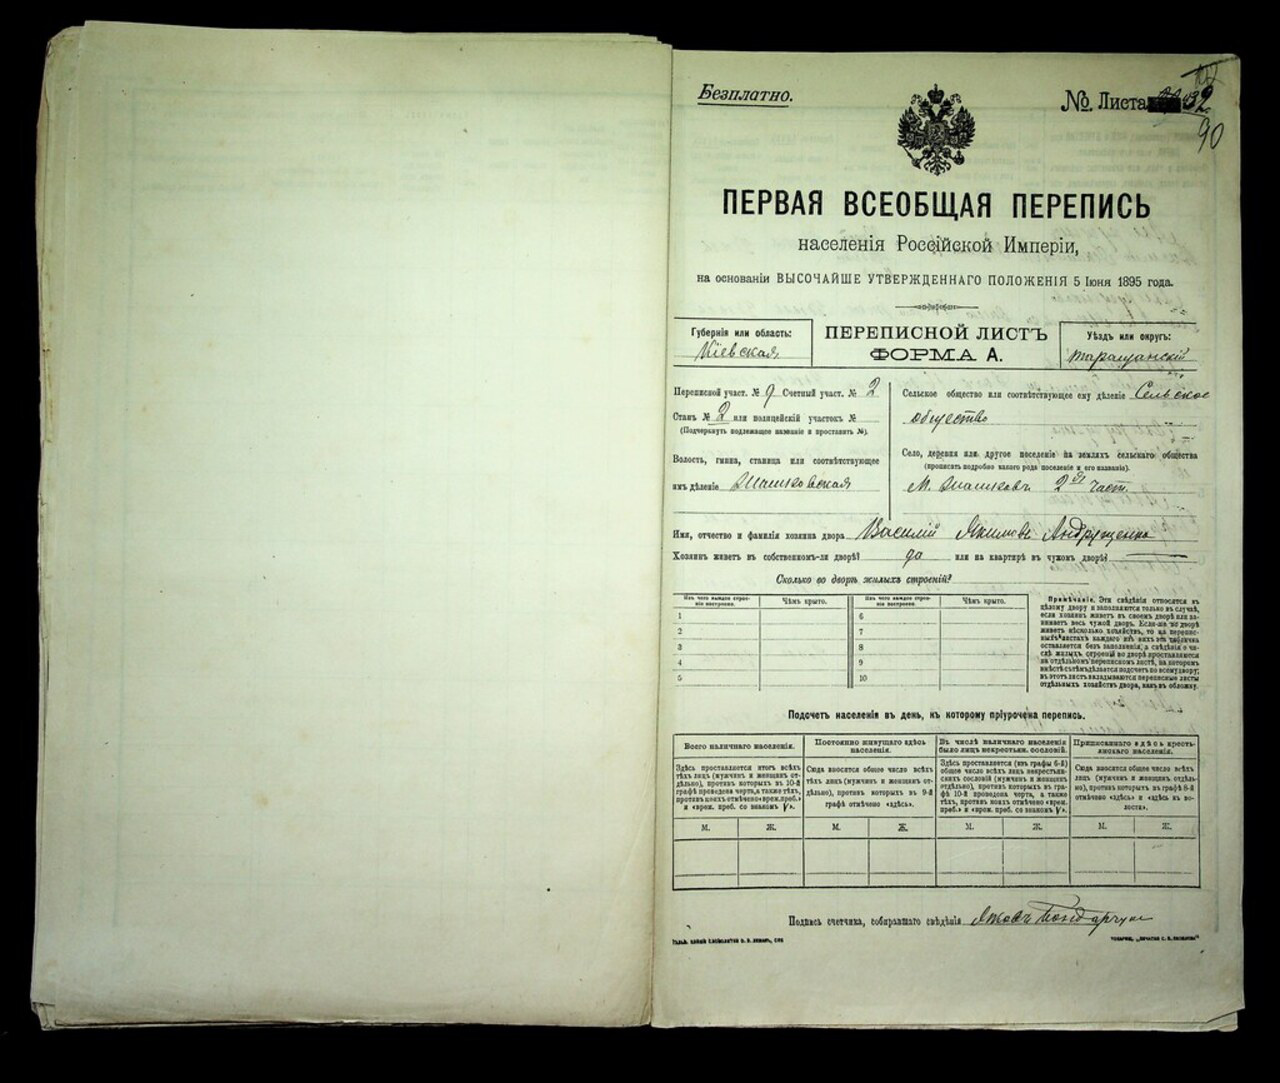 Безплатно.
№ Листа 32
90
ПЕРВАЯ ВСЕОБЩАЯ ПЕРЕПИСЬ
населенія Россійской Имперіи,
на основаніи ВЫСОЧАЙШЕ УТВЕРЖДЕННАГО ПОЛОЖЕНІЯ 5 Іюня 1895 года.
Губернія или область:
Кіевская
ПЕРЕПИСНОЙ ЛИСТЪ
ФОРМА А.
Уѣздъ или округъ:
Таращанскій
Переписной участ. № 9 Счетный участ. № 2
Станъ № 2 или полицейскій участокъ №
(Подчеркнуть подлежащее названіе и проставить №).
Волость, гмина, станица или соотвѣтствующее
имъ дѣленіе
Сельское общество или соотвѣтствующее ему дѣленіе Сельское
общество
Село, деревня или другое поселеніе на земляхъ сельскаго общества
(прописать подробно какого рода поселеніе и его названіе).
М. 2ая част.
Имя, отчество и фамилія хозяина двора Василій Якимовъ Андрущенко
Хозяинъ живетъ въ собственномъ-ли дворѣ? да или на квартирѣ въ чужомъ дворѣ?
Сколько во дворѣ жилыхъ строеній?
Изъ чего каждое строе-
ніе построено.
Чѣмъ крыто.
Изъ чего каждое строе-
ніе построено.
Чѣмъ крыто.
1
2
3
4
5
6
7
8
9
10
Примѣчаніе. Эти свѣдѣнія относятся къ
цѣлому двору и заполняются только въ случаѣ,
если хозяинъ живетъ въ своемъ дворѣ или за-
нимаетъ весь чужой дворъ. Если-же во дворѣ
живетъ нѣсколько хозяйствъ, то на перепис-
ныхъ листахъ каждаго изъ нихъ эта табличка
оставляется безъ заполненія, а свѣдѣнія о чи-
слѣ жилыхъ строеній во дворѣ проставляются
на отдѣльномъ переписномъ листѣ, на которомъ
вмѣстѣ съ тѣмъ дѣлается подсчетъ по всему двору;
въ этотъ листъ вкладываются переписные листы
отдѣльныхъ хозяйствъ двора, какъ въ обложку.
Подсчетъ населенія въ день, къ которому пріурочена перепись.
Всего наличнаго населенія.
Здѣсь проставляется итогъ всѣхъ
тѣхъ лицъ (мужчинъ и женщинъ от-
дѣльно), противъ которыхъ въ 10-й
графѣ проведена черта, а также тѣхъ,
противъ коихъ отмѣчено «врем. преб.»
и «врем. преб. со знакомъ V».
Постоянно живущаго здѣсь
населенія.
Сюда вносится общее число всѣхъ
тѣхъ лицъ (мужчинъ и женщинъ от-
дѣльно), противъ которыхъ въ 9-й
графѣ отмѣчено «здѣсь».
Въ числѣ наличнаго населенія
было лицъ некрестьян. сословій.
Здѣсь проставляется (изъ графы 6-й)
общее число всѣхъ лицъ некрестьян-
скихъ сословій (мужчинъ и женщинъ
отдѣльно), противъ которыхъ въ гра-
фѣ 10-й проведена черта, а также
тѣхъ, противъ коихъ отмѣчено «врем.
преб.» и «врем. преб. со знакомъ V».
Приписаннаго здѣсь кресть-
янскаго населенія.
Сюда вносится общее число всѣхъ
лицъ (мужчинъ и женщинъ отдѣль-
но), противъ которыхъ въ графѣ 8-й
отмѣчено «здѣсь» и «здѣсь въ во-
лости».
М. Ж. М. Ж. М. Ж. М. Ж.
Подпись счетчика, собиравшаго свѣдѣнія Яковъ Бондарчук